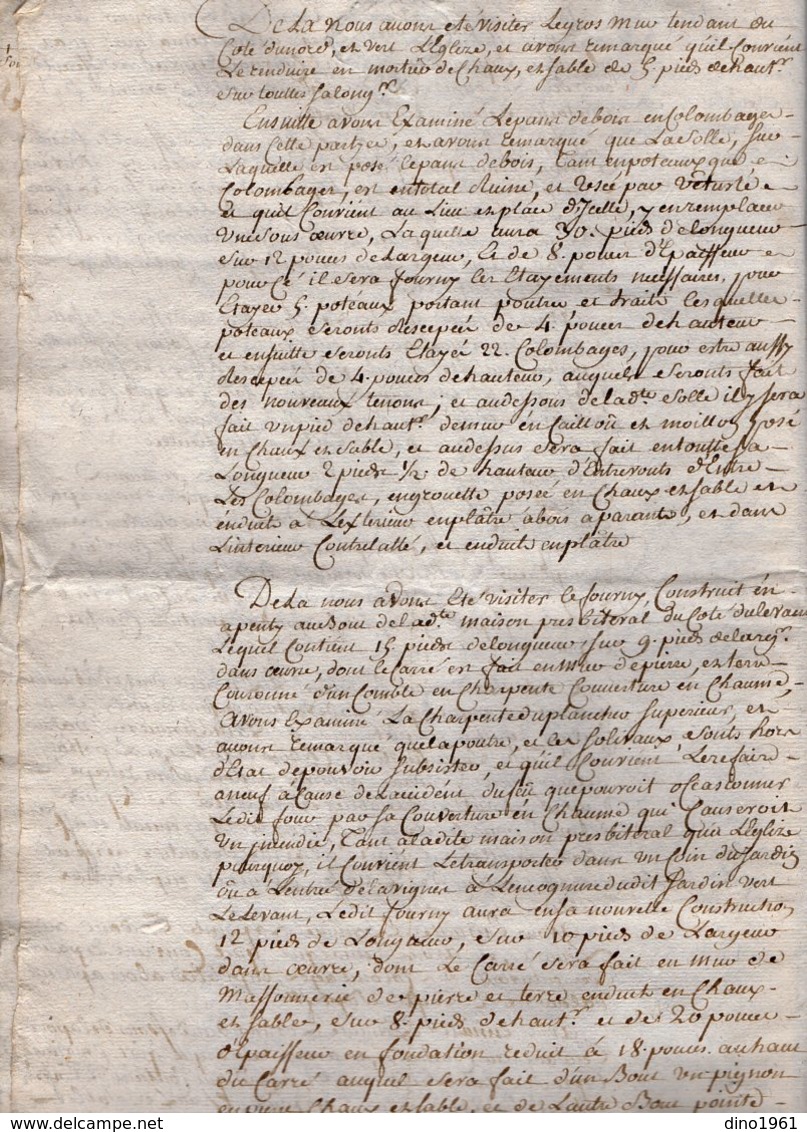 De La nous avons eté visiter Legros Mur tendant du
Coté dunord, et vert L'Eglize, et avons remarqué qu'il Convient
Le renduire en mortier de Chaux, et sable de 5. pieds de haut.r
sur touttes sa long.r
Ensuitte avons Examiné Lepans debois en Colombager
dans Cette partye, et avons remarqué que La Solle, sur
Laquelle est posé lepans debois, Tant en poteaux que
Colombager, est entotal Ruine, et Usée par Vetusté
et qu'il Convient au Lieu et place d'Jcelle, y en remplacer
Une sous œuvre, Laquelle aura 30. pieds de longueur
sur 12 pouces de Largeur, Et de 8. pouces d'Epaisseur
pour Cé il sera fourny les Etayements necessaires, pour
Etayer 5. potéaux portant poutre et traité lesquelles
poteaux seronts Rescepér de 4. pouces de hauteur
et ensuitte seronts Etayér 22. Colombages, pour estre aussy
Rescepér de 4. pouces de hauteur, auquels seronts fait
des nouveaux tenons; et audessous de lad.te solle il y sera
fait un pied de haut.r de mur en Caillou et moillon posé
en Chaux et sable, et audessus sera fait en toutte sa
Longueur 2 pieds 1/2. de hauteur d'Entrevouts d'Entre
Les Colombages, en grouette posée en Chaux et sable et
énduite à L'exterieur en platré à bois aparants, et dans
L'interieur Contrelatté, et enduit en platre
De La nous avons Eté visiter le fourny, Construit én
apenty au Bout de lad.te maison presbiteral du Coté du levant
Lequel Contient 15. pieds de longueur sur 9. pieds de larg.r
dans œuvre, dont le Carré est fait en mur de pierre, et terre
Couronné d'un Comble en Charpente Couverture en Chaume,
Avons Examiné La Charpente du plancher superieur, et
avons remarqué que la poutre, et les Solivaux sonts hors
d'Etat de pouvoir subsister, et qu'il Convient Le refaire
a neuf à Cause de L'accident du feu que pourroit ocasionner
Ledit four par sa Couverture én Chaume qui Causeroit
Un jncendie, Tant a ladite maison presbiteral qu'a L'Eglize
pourquoy, il Convient Le transporter dans un Coin du Jardin
où à L'entré de la vigne à L'encognure dudit Jardin vert
Le Levant, Ledit fourny aura en sa nouvelle Construction
12 pieds de Longueur, sur 10 pieds de Largeur
dans œuvre, dont Le Carré sera fait en mur de
Massonnerie de pierre et terre enduit en Chaux
et sable, sur 8. pieds de haut.r et de 20 pouces
d'Epaisseur en fondation reduit à 18. pouces au haut
du Carré auquel sera fait d'un Bout un pignon
en pierre Chaux et sable, et de L'autre Bout pointe
dino1961